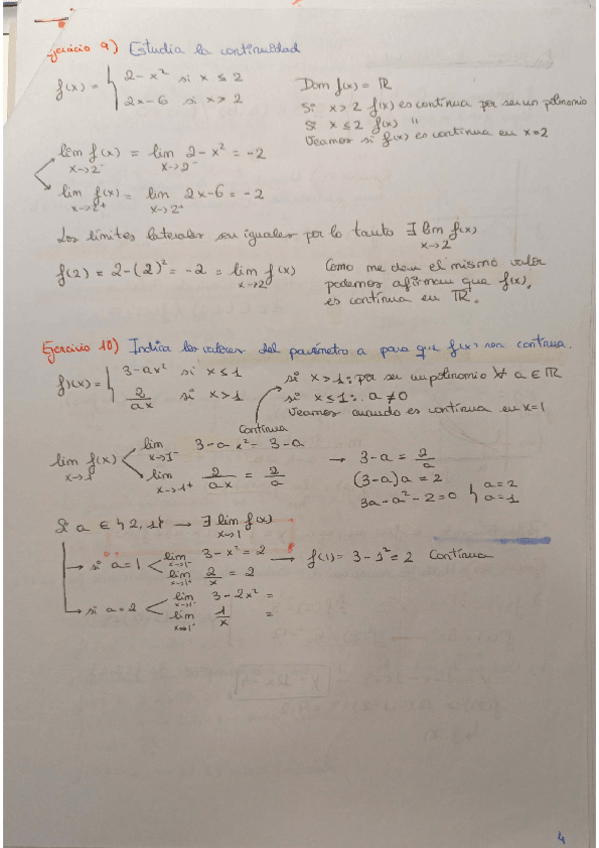 Ejercicio 9) Estudia la continuidad
f(x) = { 2 - x² si x ≤ 2
2x - 6 si x > 2
Dom f(x) = ℝ
Si x > 2 f(x) es continua por ser un polinomio
Si x ≤ 2 f(x) "
Veamos si f(x) es continua en x=2
lim x→2⁻ f(x) = lim x→2⁻ 2 - x² = -2
lim x→2⁺ f(x) = lim x→2⁺ 2x - 6 = -2
Los límites laterales son iguales por lo tanto ∃ lim x→2 f(x)
f(2) = 2 - (2)² = -2 = lim x→2 f(x)
Como me dan el mismo valor
podemos afirmar que f(x),
es continua en ℝ.
Ejercicio 10) Indica los valores del parámetro a para que f(x) sea continua.
f(x) = { 3 - ax² si x ≤ 1
2/ax si x > 1
si x > 1: por ser un polinomio ∀ a ∈ ℝ
si x ≤ 1: a ≠ 0
Veamos cuando es continua en x=1
Continua
lim x→1 f(x)
lim x→1⁻ 3 - a x² = 3 - a
lim x→1⁺ 2/ax = 2/a
→ 3 - a = 2/a
(3 - a)a = 2
3a - a² - 2 = 0 { a = 2
a = 1
Si a ∈ {2, 1} → ∃ lim x→1 f(x)
→ si a = 1 < lim x→1⁻ 3 - x² = 2
lim x→1⁺ 2/x = 2
→ f(1) = 3 - 1² = 2 Continua
→ si a = 2 < lim x→1⁻ 3 - 2x² =
lim x→1⁺ 1/x =
4